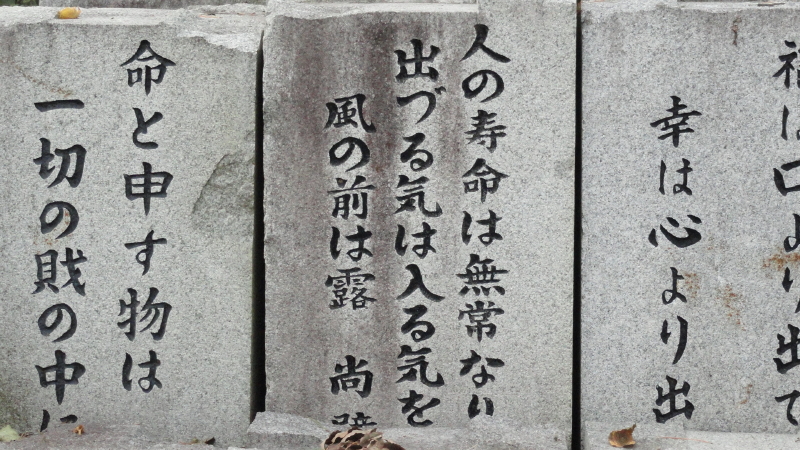 は口より出で
幸は心より出
人の寿命は無常なり
出づる気は入る気を
風の前は露 尚
命と申す物は
一切の財の中に